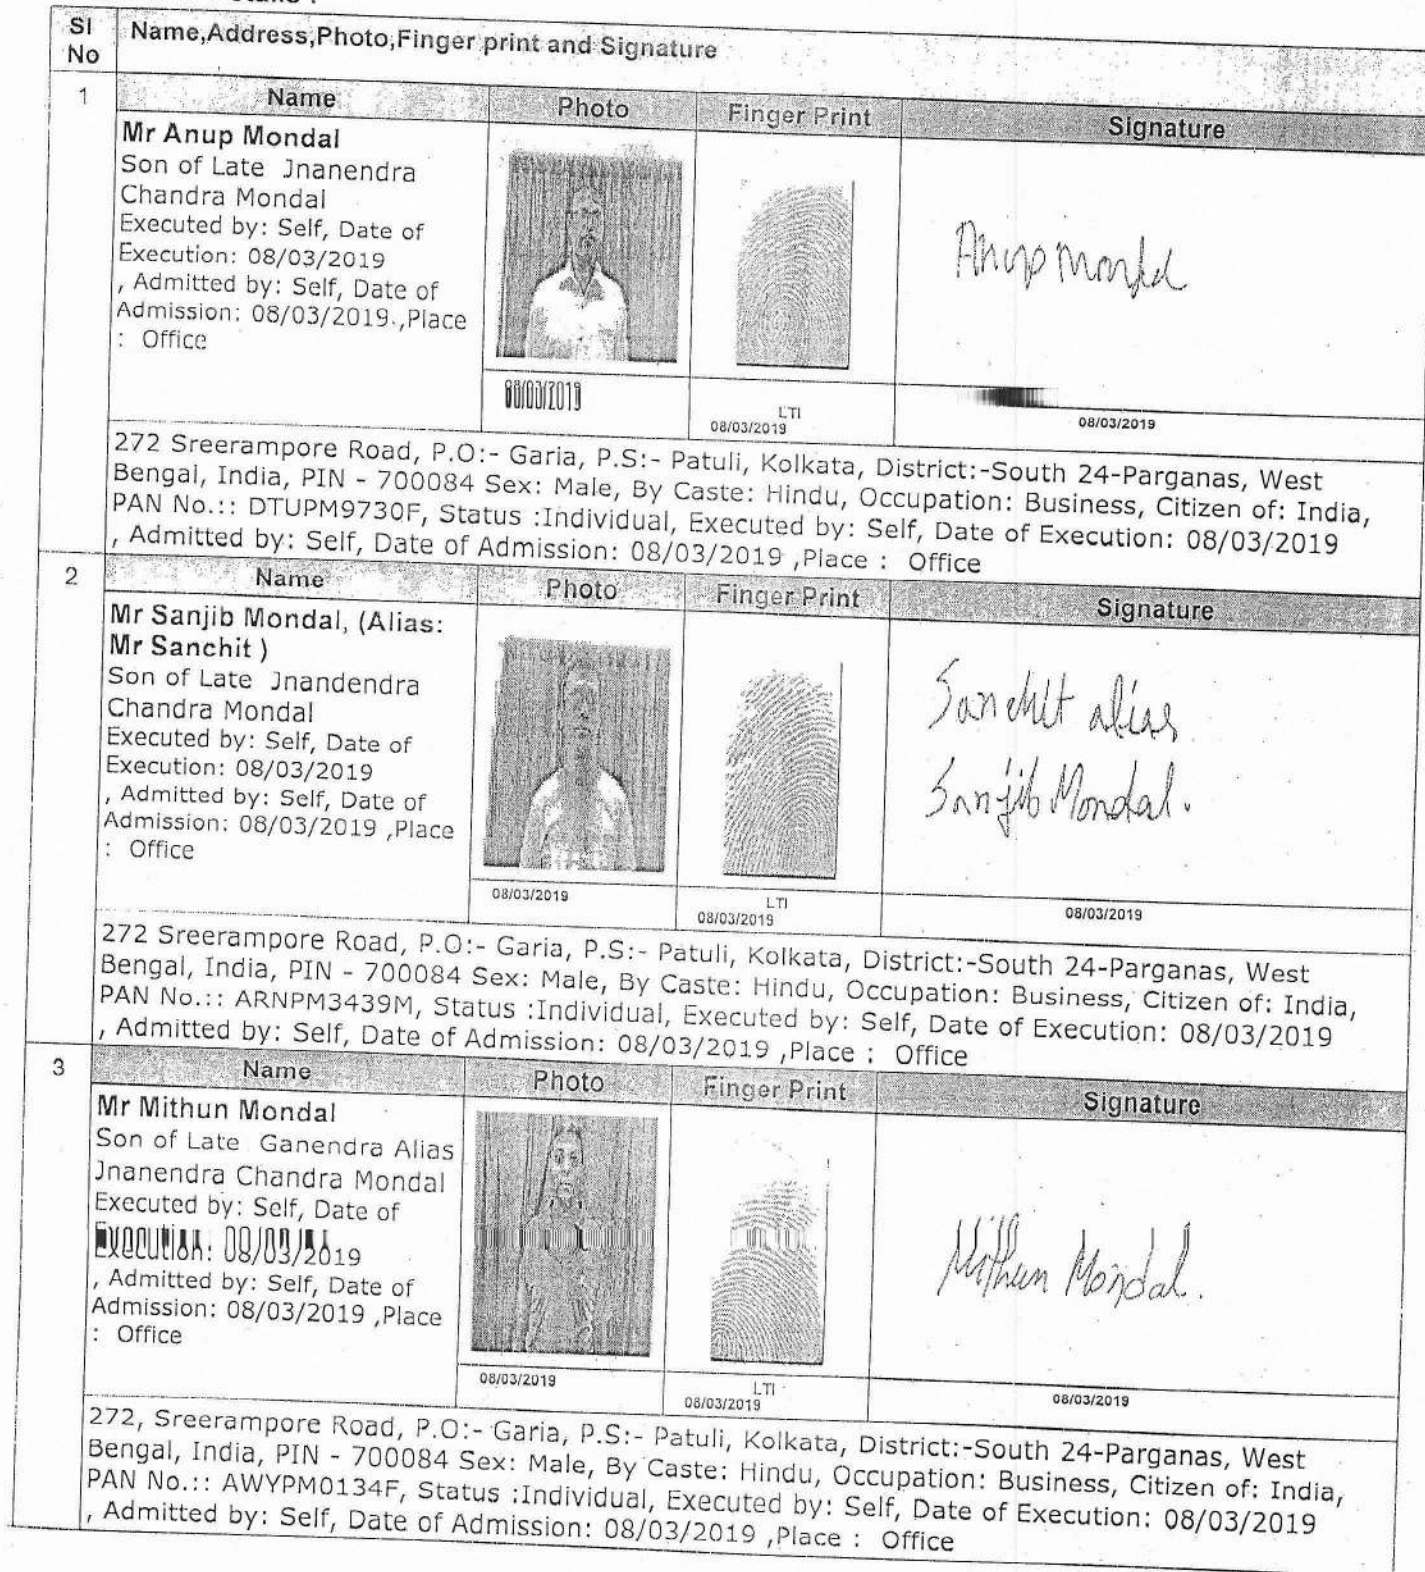 Sl No
Name,Address,Photo,Finger print and Signature
1
Name
Photo
Finger Print
Signature
Mr Anup Mondal
Son of Late Jnanendra
Chandra Mondal
Executed by: Self, Date of
Execution: 08/03/2019
, Admitted by: Self, Date of
Admission: 08/03/2019 ,Place
: Office
08/03/2019
LTI
08/03/2019
Anup Mondal
08/03/2019
272 Sreerampore Road, P.O:- Garia, P.S:- Patuli, Kolkata, District:-South 24-Parganas, West
Bengal, India, PIN - 700084 Sex: Male, By Caste: Hindu, Occupation: Business, Citizen of: India,
PAN No.:: DTUPM9730F, Status :Individual, Executed by: Self, Date of Execution: 08/03/2019
, Admitted by: Self, Date of Admission: 08/03/2019 ,Place : Office
2
Name
Photo
Finger Print
Signature
Mr Sanjib Mondal, (Alias:
Mr Sanchit )
Son of Late Jnandendra
Chandra Mondal
Executed by: Self, Date of
Execution: 08/03/2019
, Admitted by: Self, Date of
Admission: 08/03/2019 ,Place
: Office
08/03/2019
LTI
08/03/2019
Sanchit alias
Sanjib Mondal.
08/03/2019
272 Sreerampore Road, P.O:- Garia, P.S:- Patuli, Kolkata, District:-South 24-Parganas, West
Bengal, India, PIN - 700084 Sex: Male, By Caste: Hindu, Occupation: Business, Citizen of: India,
PAN No.:: ARNPM3439M, Status :Individual, Executed by: Self, Date of Execution: 08/03/2019
, Admitted by: Self, Date of Admission: 08/03/2019 ,Place : Office
3
Name
Photo
Finger Print
Signature
Mr Mithun Mondal
Son of Late Ganendra Alias
Jnanendra Chandra Mondal
Executed by: Self, Date of
Execution: 08/03/2019
, Admitted by: Self, Date of
Admission: 08/03/2019 ,Place
: Office
08/03/2019
LTI
08/03/2019
Mithun Mondal.
08/03/2019
272, Sreerampore Road, P.O:- Garia, P.S:- Patuli, Kolkata, District:-South 24-Parganas, West
Bengal, India, PIN - 700084 Sex: Male, By Caste: Hindu, Occupation: Business, Citizen of: India,
PAN No.:: AWYPM0134F, Status :Individual, Executed by: Self, Date of Execution: 08/03/2019
, Admitted by: Self, Date of Admission: 08/03/2019 ,Place : Office